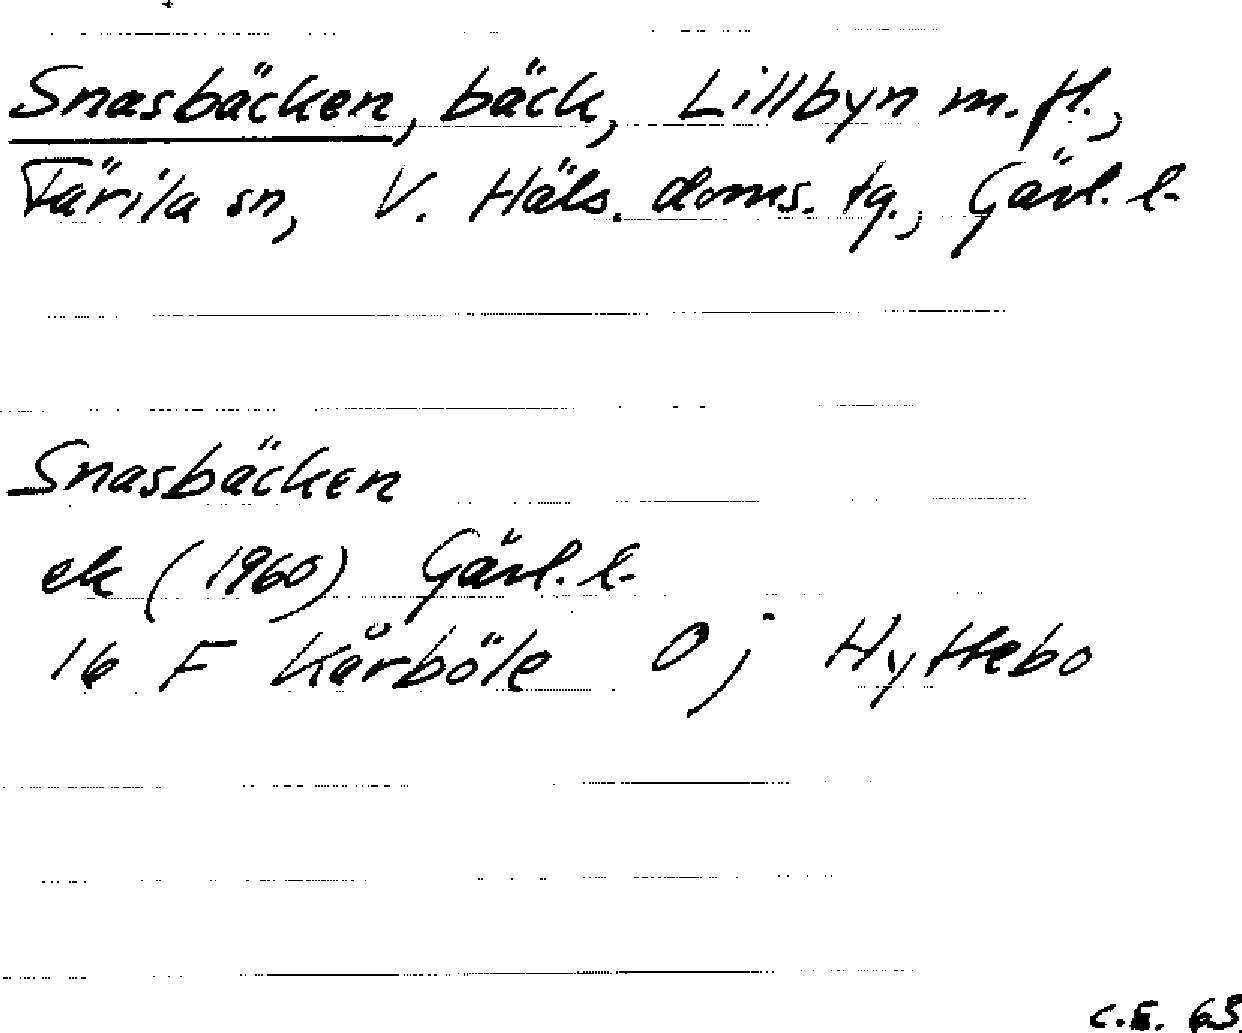 Snasbäcken, bäck, Lillbyn m.fl.,
Färila sn, V. Häls. doms. tg., Gävl. l.
Snasbäcken
ek (1960) Gävl. l.
16 F Kårböle O; Hyttebo
C.E. 63